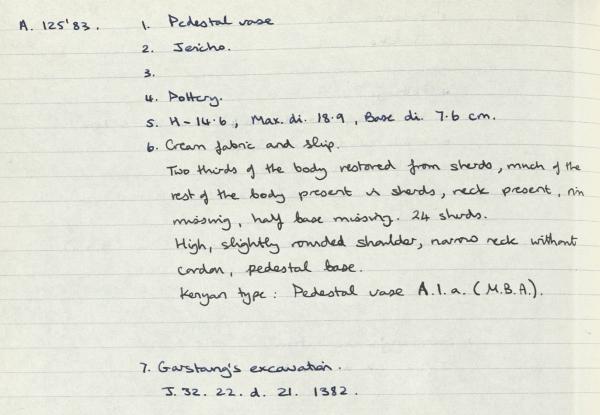 A. 125'83. 1. Pedestal vase
2. Jericho.
3.
4. Pottery.
5. H - 14.6, Max. di. 18.9, Base di. 7.6 cm.
6. Cream fabric and slip.
Two thirds of the body restored from sherds, much of the
rest of the body present in sherds, neck present, rim
missing, half base missing. 24 sherds.
High, slightly rounded shoulder, narrow neck without
cordon, pedestal base.
Kenyan type: Pedestal vase A.1.a. (M.B.A.).
7. Garstang's excavation.
J. 32. 22. d. 21. 1382.